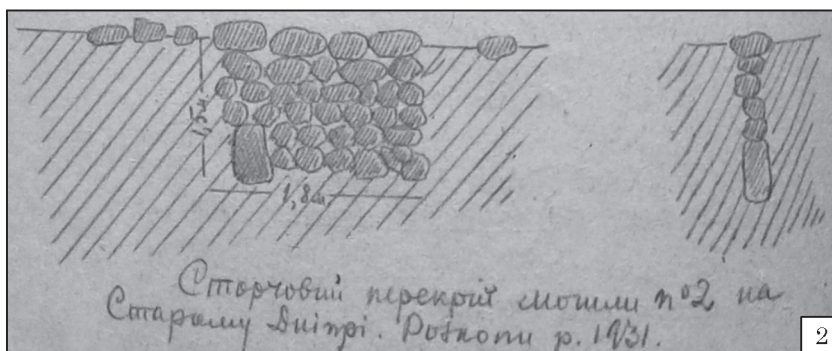 1,5м.
1,8м
Сторчовий перекрій могили №2 на
Старому Дніпрі. Розкопи р. 1931.
2